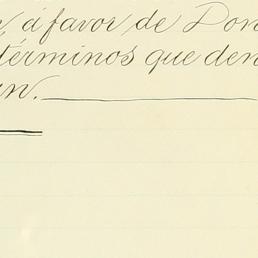 á favor de Don
términos que den